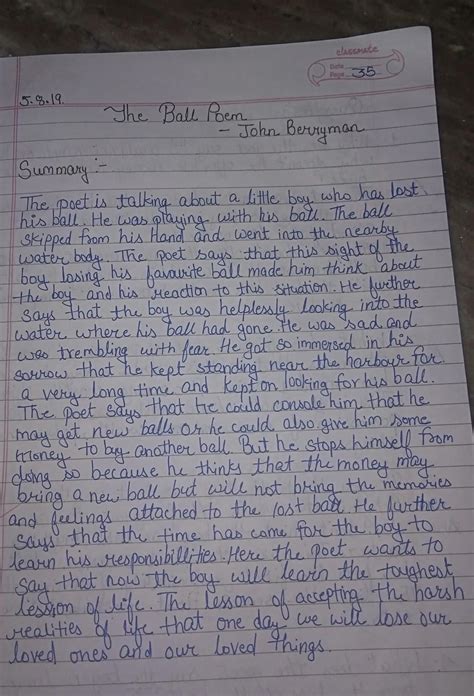 classmate
Date
Page 35
5.8.19.
The Ball Poem
- John Berryman
Summary :-
The poet is talking about a little boy who has lost
his ball. He was playing with his ball. The ball
skipped from his Hand and went into the nearby
water body. The poet says that this sight of the
boy losing his favourite ball made him think about
the boy and his reaction to this situation. He further
says that the boy was helplessly looking into the
water where his ball had gone. He was sad and
was trembling with fear. He got so immersed in his
sorrow that he kept standing near the harbour for
a very long time and kept on looking for his ball.
The poet says that he could console him that he
may get new balls or he could also give him some
money to buy another ball. But he stops himself from
doing so because he thinks that the money may
bring a new ball but will not bring the memories
and feelings attached to the lost ball. He further
says that the time has come for the boy to
learn his responsibillities. Here the poet wants to
say that now the boy will learn the toughest
lession of life. The lesson of accepting the harsh
realities of life that one day we will lose our
loved ones and our loved things.